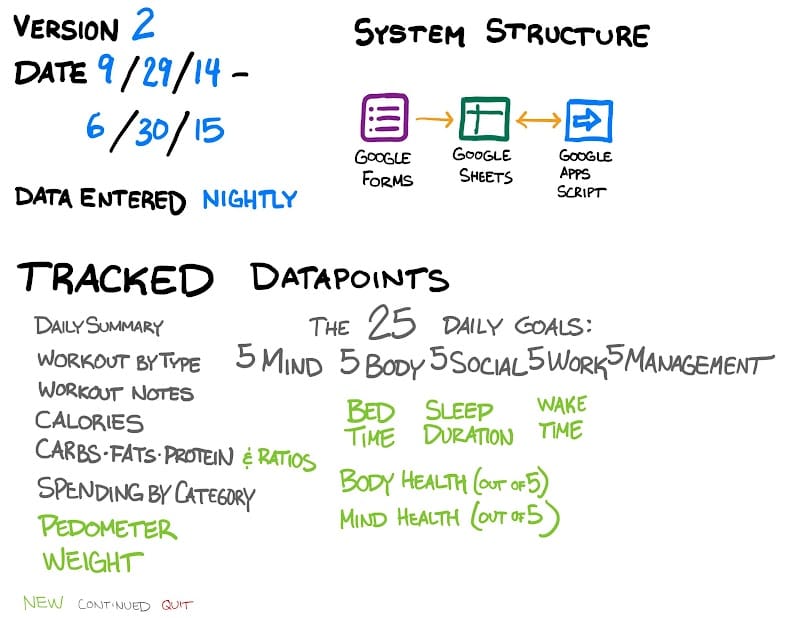 VERSION 2
DATE 9/29/14 -
6/30/15
DATA ENTERED NIGHTLY
SYSTEM STRUCTURE
GOOGLE FORMS
GOOGLE SHEETS
GOOGLE APPS SCRIPT
TRACKED DATAPOINTS
DAILY SUMMARY
WORKOUT BY TYPE
WORKOUT NOTES
CALORIES
CARBS·FATS·PROTEIN & RATIOS
SPENDING BY CATEGORY
PEDOMETER
WEIGHT
THE 25 DAILY GOALS:
5 MIND 5 BODY 5 SOCIAL 5 WORK 5 MANAGEMENT
BED TIME
SLEEP DURATION
WAKE TIME
BODY HEALTH (OUT OF 5)
MIND HEALTH (OUT OF 5)
NEW CONTINUED QUIT